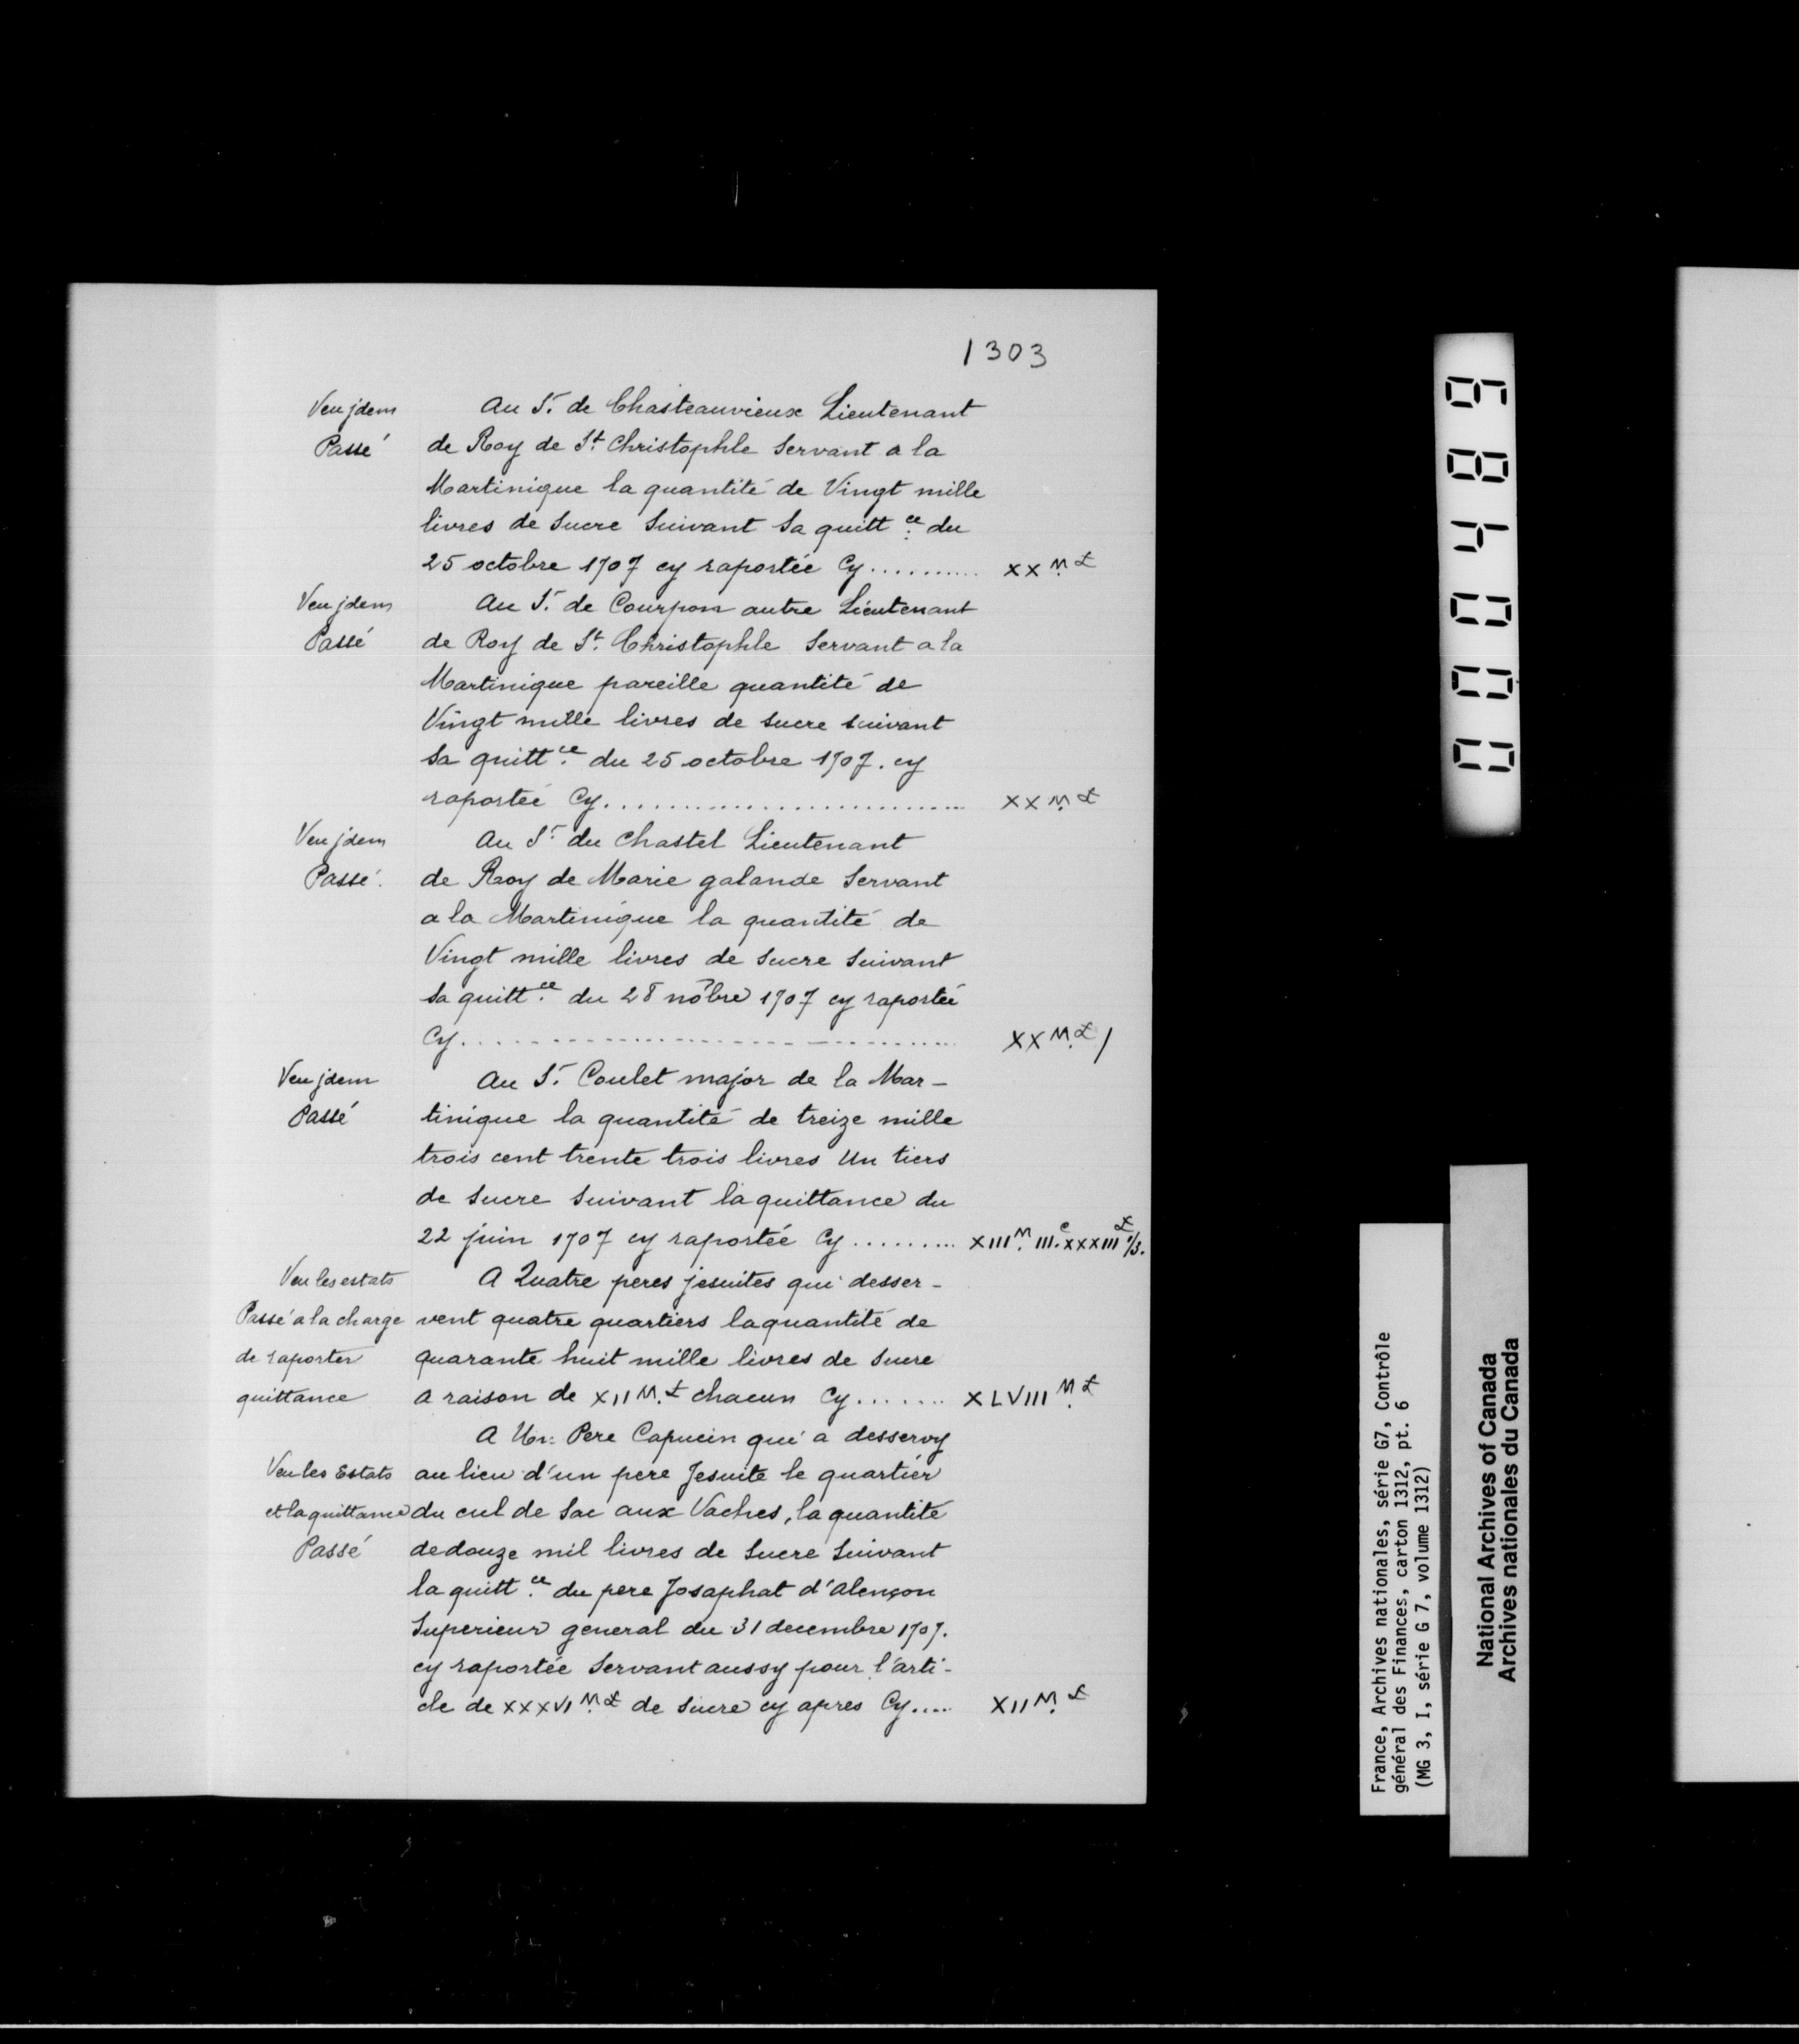 1303
Veu jdem Au Sr. de Chasteauvieux Lieutenant
Passé de Roy de St. Christophle Servant a la
Martinique la quantité de Vingt mille
livres de Sucre Suivant Sa quittce. du
25 octobre 1707 cy raportée Cy.......... XXM.₶
Veu jdem Au Sr. de Courpon autre Lieutenant
Passé de Roy de St. Christophle Servant a la
Martinique pareille quantité de
Vingt mille livres de sucre suivant
Sa quittce. du 25 octobre 1707. cy
raportée Cy.......................... XXM.₶
Veu jdem Au Sr. du Chastel Lieutenant
Passé. de Roy de Marie galande Servant
a la Martinique la quantité de
Vingt mille livres de sucre suivant
Sa quittce. du 28 nobre 1707 cy raportée
Cy.......................... XXM.₶/
Veu jdem Au Sr. Coulet major de la Mar-
Passé tinique la quantité de treize mille
trois cent trente trois livres Un tiers
de Sucre Suivant la quittance du
22 juin 1707 cy raportée Cy......... XIIIM. IIIc. XXXIII₶ 1/3.
Veu les estats A Quatre peres jesuites qui desser-
Passé a la charge vent quatre quartiers la quantité de
de raporter quarante huit mille livres de Sucre
quittance a raison de XIIM.₶ chacun Cy....... XLVIIIM.₶
A Un Pere Capucin qui a desservy
Veu les Estats au lieu d'un pere Jesuite le quartier
et la quittance du cul de Sac aux Vaches, la quantité
Passé de douze mil livres de Sucre Suivant
la quittce. du pere Josaphat d'alençon
Superieur general du 31 decembre 1707.
cy raportée Servant aussy pour l'arti-
cle de XXXVIM.₶ de Sucre cy apres Cy.... XIIM.₶
000489
France, Archives nationales, série G7, Contrôle
général des Finances, carton 1312, pt. 6
(MG 3, I, série G 7, volume 1312)
National Archives of Canada
Archives nationales du Canada